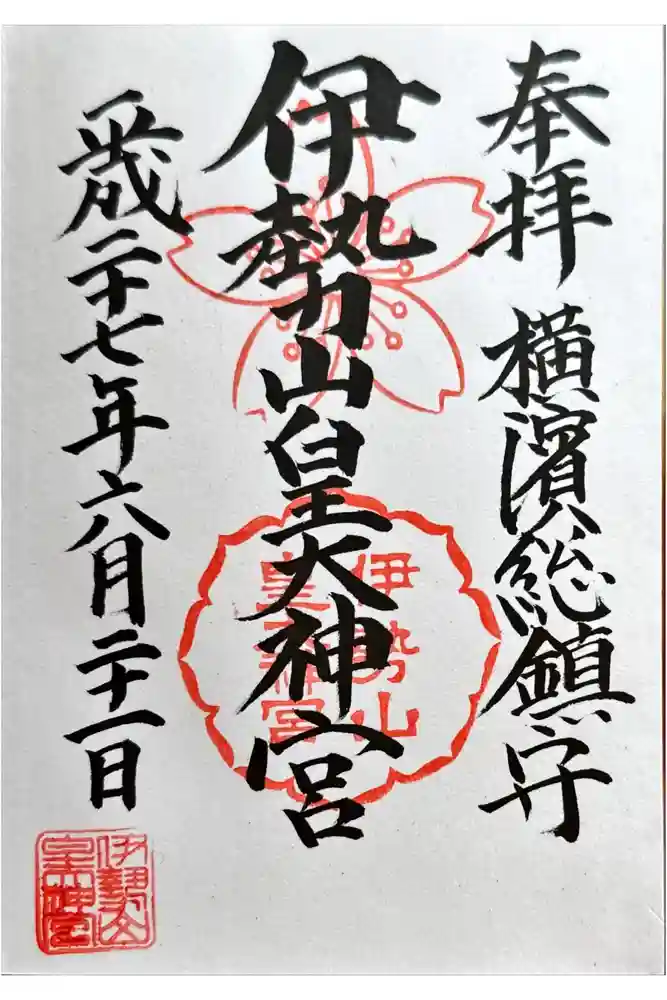 奉拝 横濱総鎮守
伊勢山皇大神宮
平成二十七年六月二十一日
伊勢山
皇大神宮
伊勢山
皇大神宮